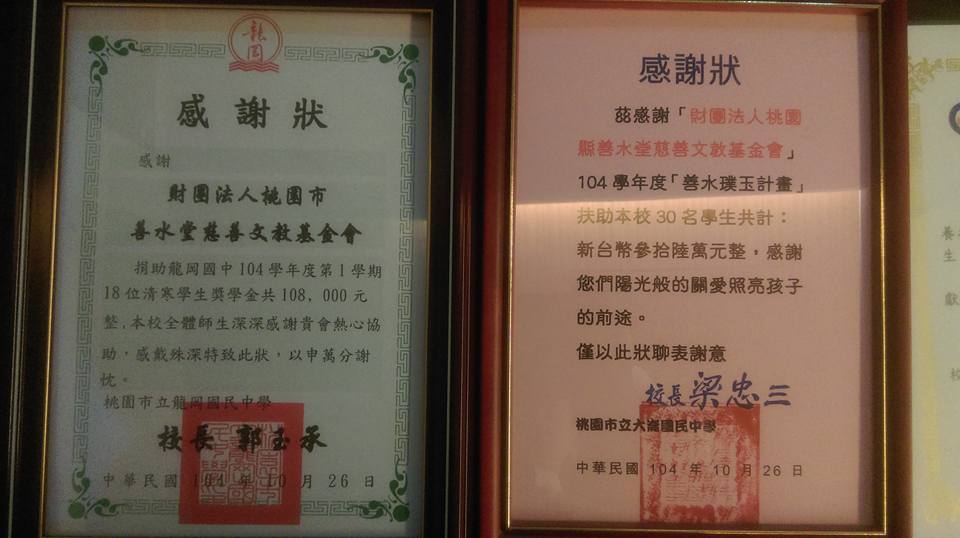 龍岡
感謝狀
感謝
財團法人桃園市
善水堂慈善文教基金會
捐助龍岡國中104學年度第1學期
18位清寒學生獎學金共108,000元
整,本校全體師生深深感謝貴會熱心協
助,感戴殊深特致此狀,以申萬分謝
忱。
桃園市立龍岡國民中學
校長 郭玉承
中華民國 104 年 10 月 26 日
感謝狀
茲感謝「財團法人桃園
縣善水堂慈善文教基金會」
104學年度「善水璞玉計畫」
扶助本校30名學生共計:
新台幣參拾陸萬元整,感謝
您們陽光般的關愛照亮孩子
的前途。
僅以此狀聊表謝意
校長 梁忠三
桃園市立大崙國民中學
中華民國 104 年 10 月 26 日
養
生
獻
校